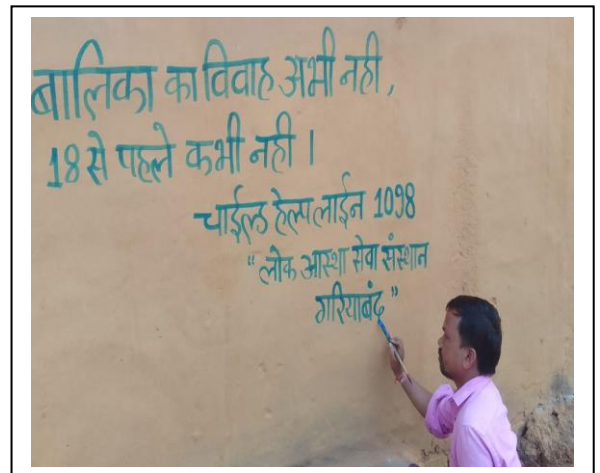 बालिका का विवाह अभी नही,
18 से पहले कभी नही ।
चाईल्ड हेल्प लाईन 1098
"लोक आस्था सेवा संस्थान
गरियाबंद"